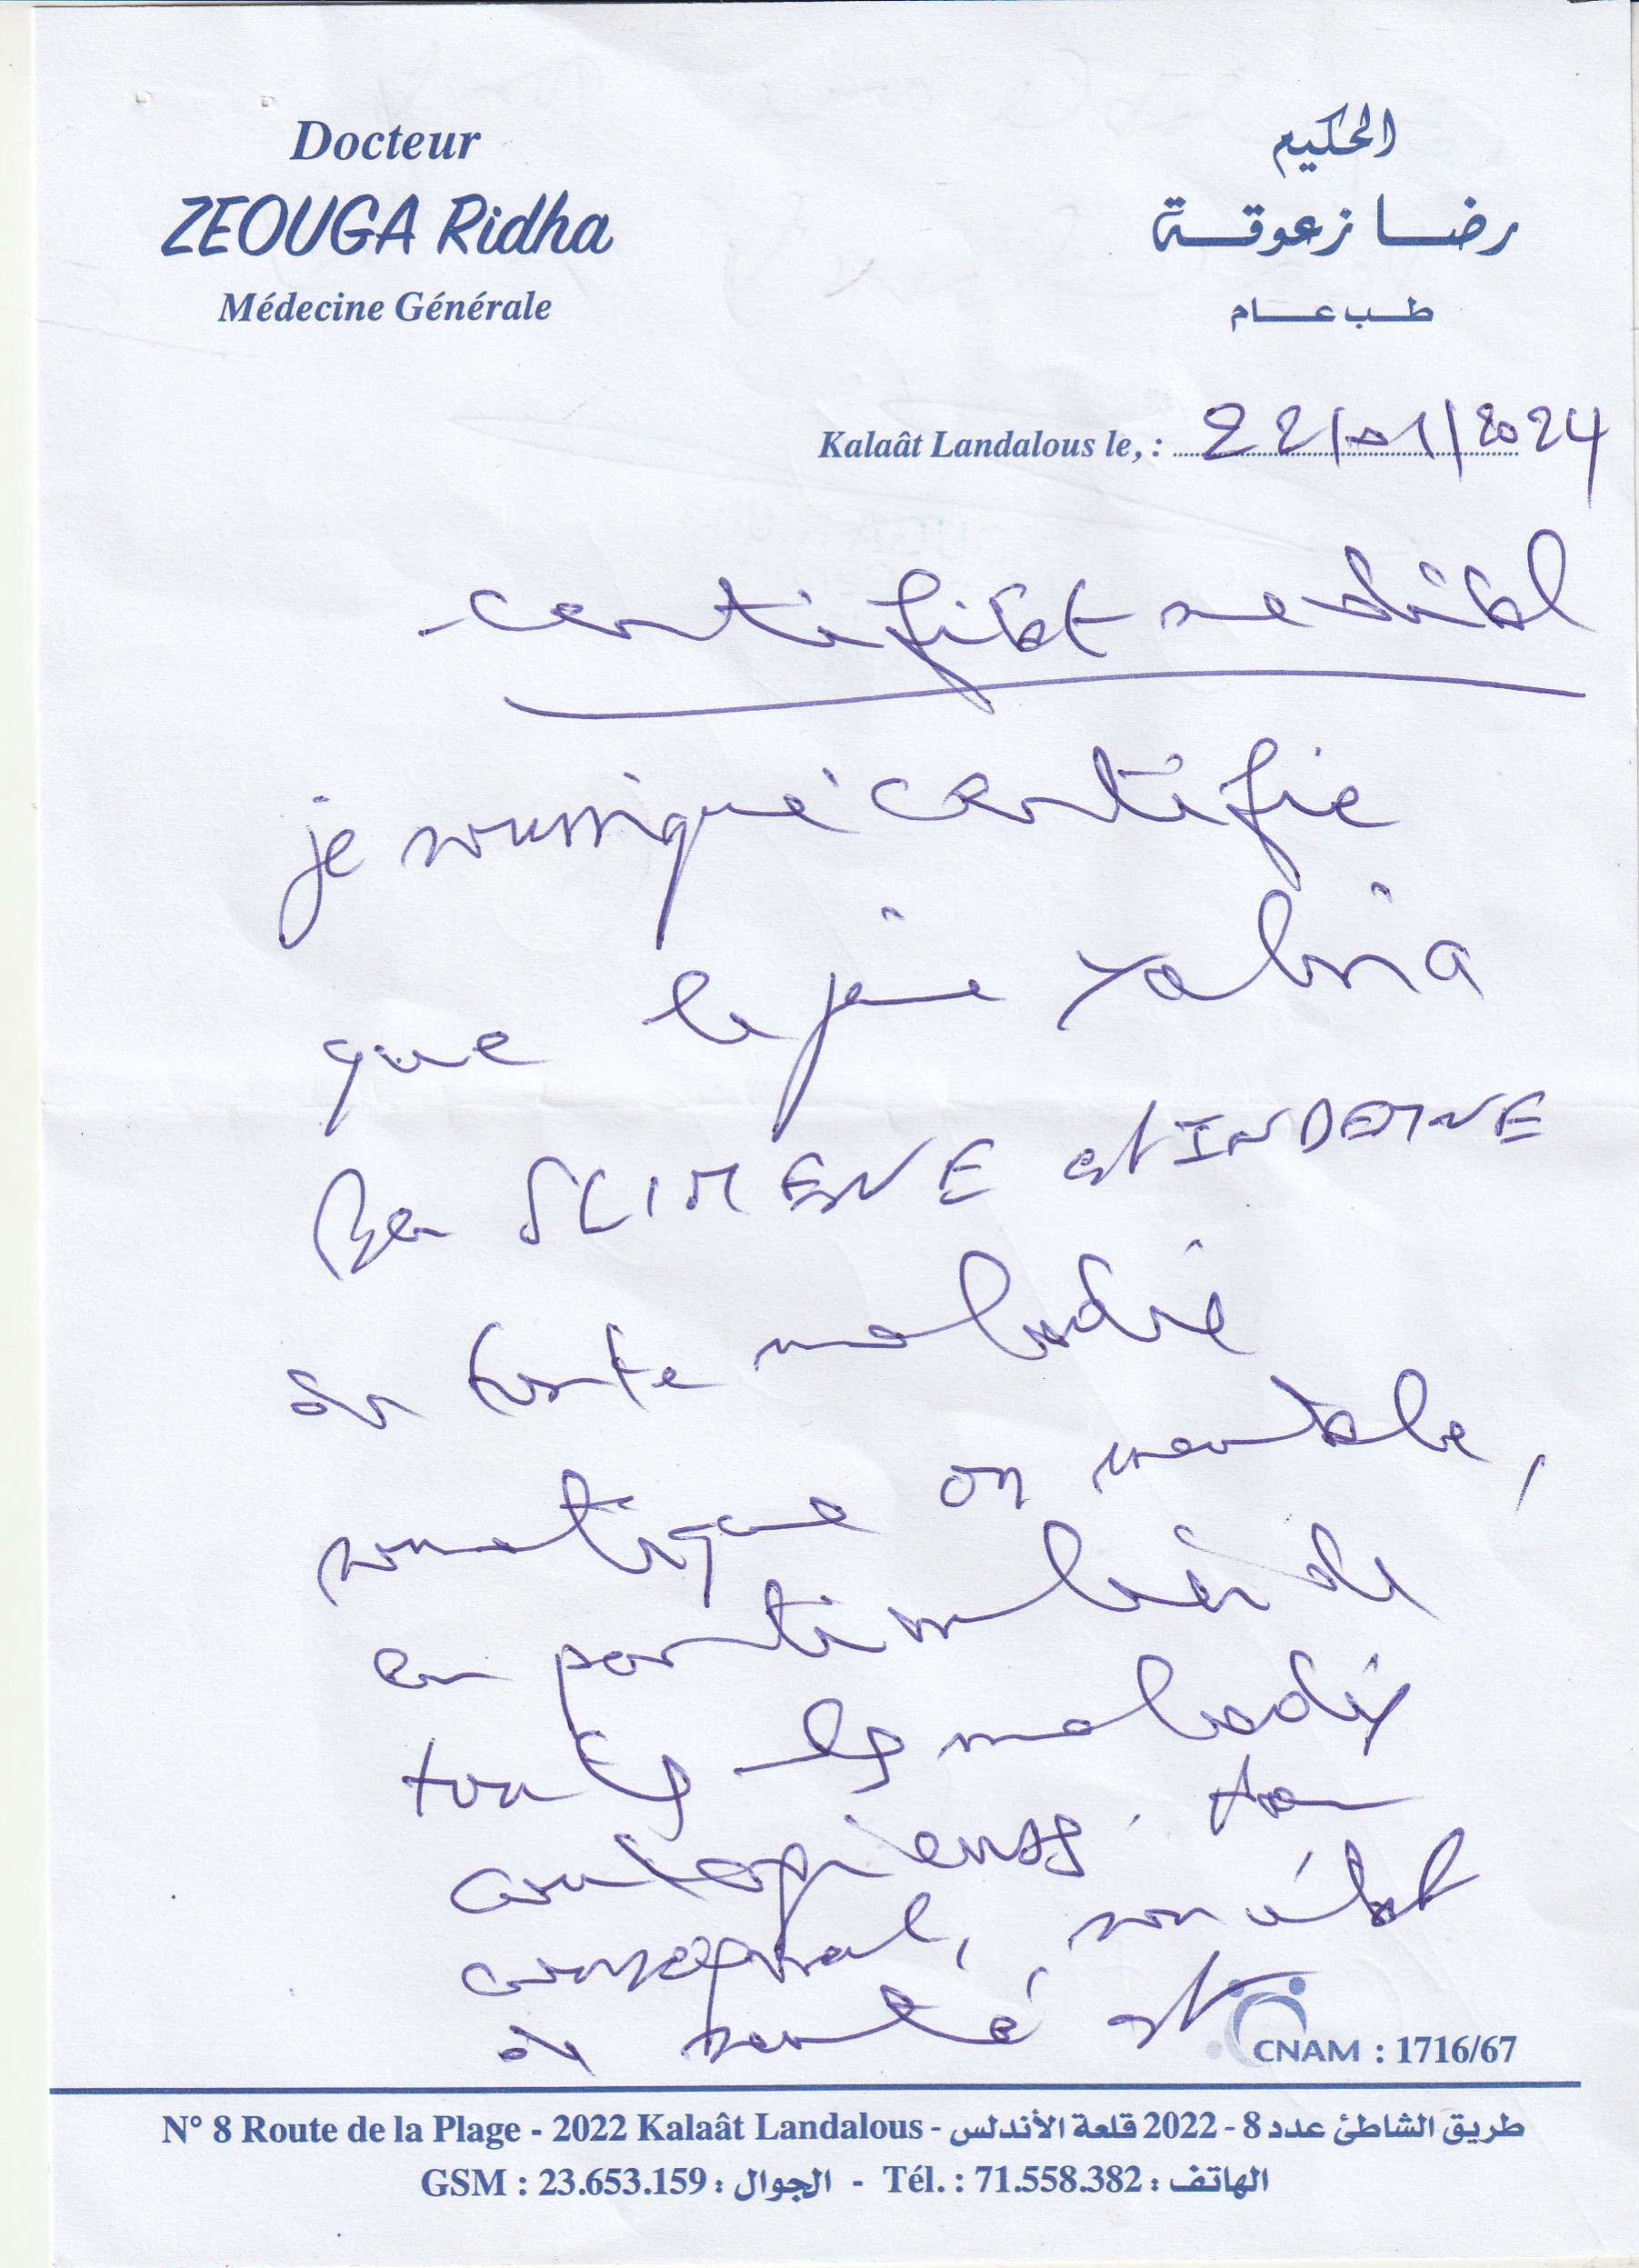 Docteur
ZEOUGA Ridha
Médecine Générale
الحكيم
رضا زعوقة
طب عام
Kalaât Landalous le, : 22/01/2024
certificat medical
je soussigné certifie
que le jeune Yahia
Ben SLIMENE est INDEMNE
de toute maladie
somatique ou mentale,
en particulier de
toutes les maladies
contagieuses. Par
conséquent, son état
de santé est
CNAM : 1716/67
N° 8 Route de la Plage - 2022 Kalaât Landalous - طريق الشاطئ عدد 8 - 2022 قلعة الأندلس
GSM : 23.653.159 : الجوال - Tél. : 71.558.382 : الهاتف